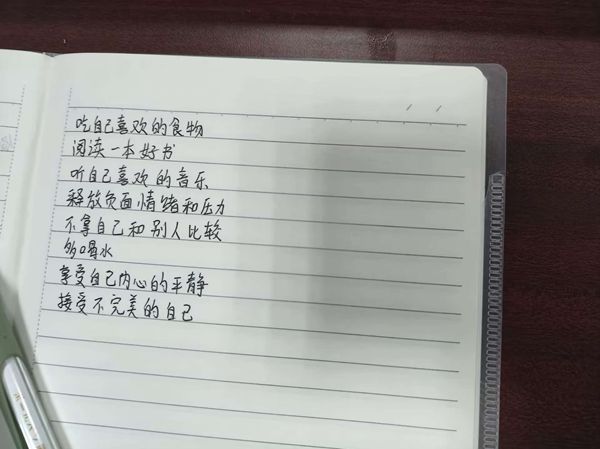 吃自己喜欢的食物
阅读一本好书
听自己喜欢的音乐
释放负面情绪和压力
不拿自己和别人比较
多喝水
享受自己内心的平静
接受不完美的自己